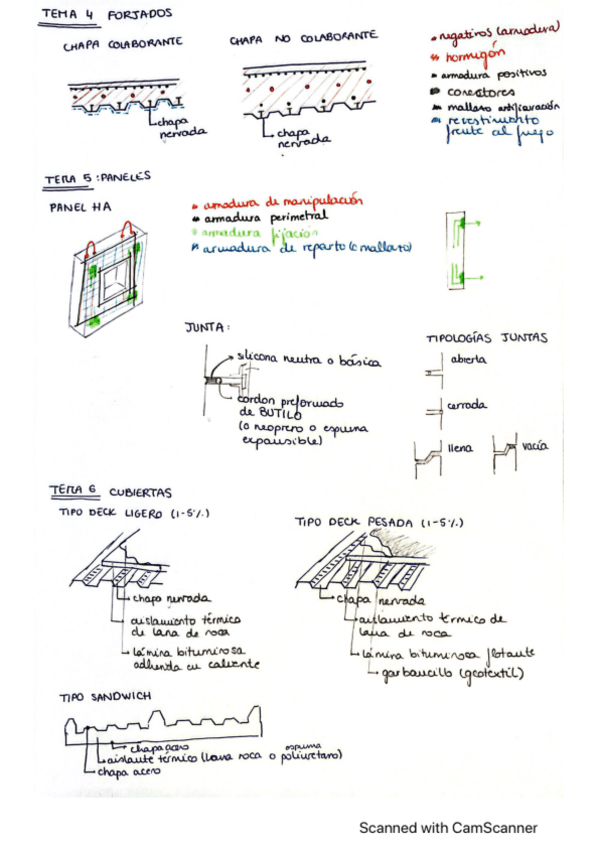 TEMA 4 FORJADOS
CHAPA COLABORANTE
chapa
nervada
CHAPA NO COLABORANTE
chapa
nervada
negativos (armadura)
hormigón
armadura positivos
conectores
mallazo antifisuración
revestimiento
frente al fuego
TEMA 5: PANELES
PANEL HA
armadura de manipulación
armadura perimetral
armadura fijación
armadura de reparto (mallazo)
JUNTA:
silicona neutra o básica
cordon preformado
de BUTILO
(o neopreno o espuma
expansible)
TIPOLOGÍAS JUNTAS
abierta
cerrada
llena
vacía
TEMA 6 CUBIERTAS
TIPO DECK LIGERO (1-5%)
chapa nervada
aislamiento térmico
de lana de roca
lámina bituminosa
adherida en caliente
TIPO DECK PESADA (1-5%)
chapa nervada
aislamiento térmico de
lana de roca
lámina bituminosa flotante
garbancillo (geotextil)
TIPO SANDWICH
chapa acero
aislante térmico (lana roca o espuma poliuretano)
chapa acero
Scanned with CamScanner